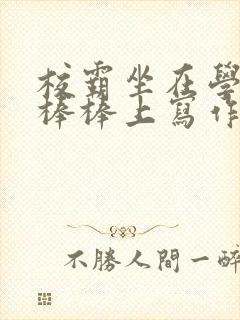 校霸坐在學
棒棒上寫作
不勝人間一醉